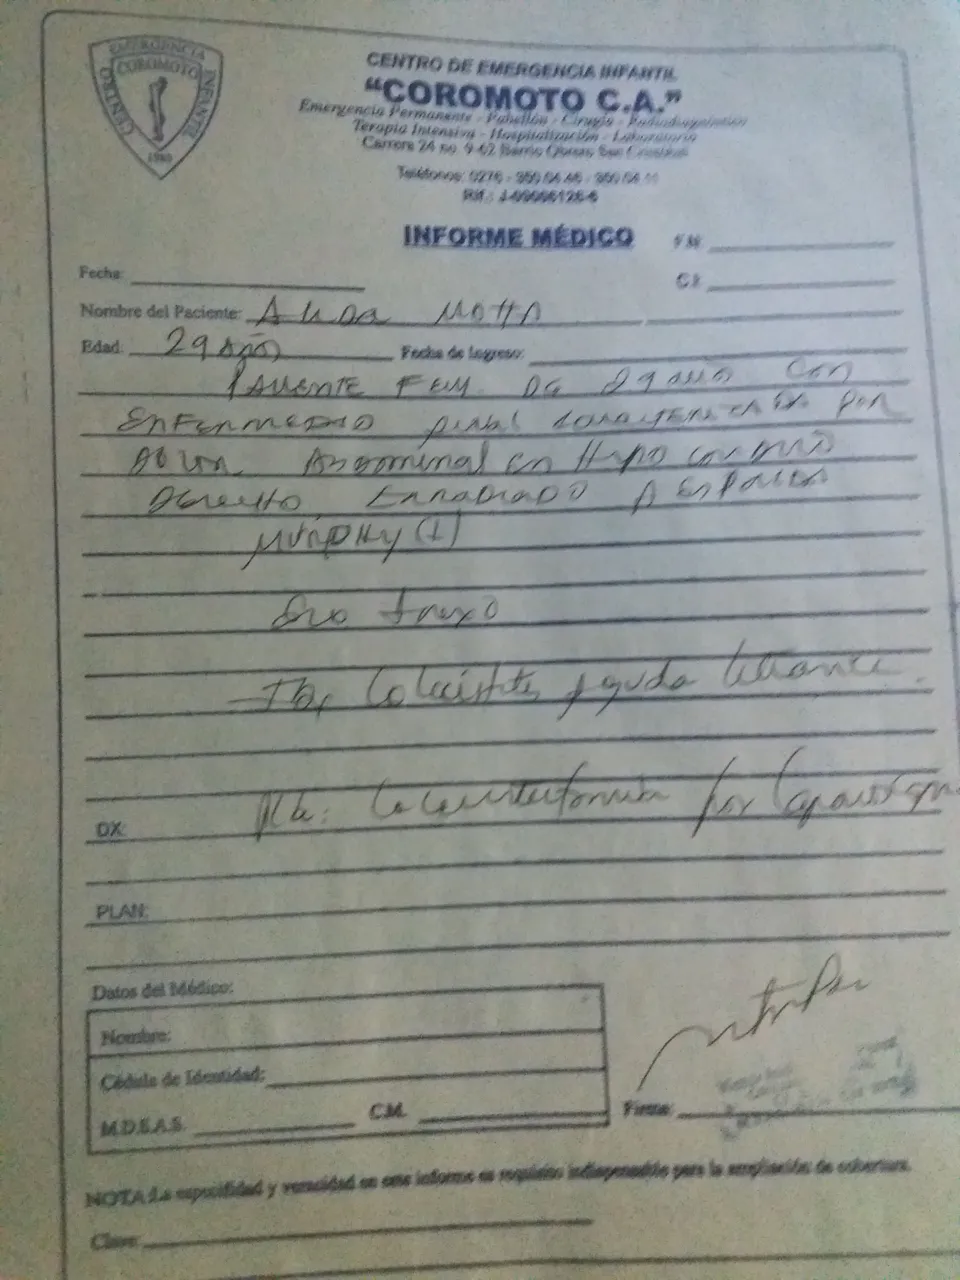 EMERGENCIA
COROMOTO
CENTRO
INFANTIL
1980
CENTRO DE EMERGENCIA INFANTIL
"COROMOTO C.A."
Emergencia Permanente - Pabellón - Cirugía - Radiodiagnóstico
Terapia Intensiva - Hospitalización - Laboratorio
Carrera 24 no. 9-62 Barrio Obrero, San Cristóbal
Teléfonos: 0276 -
Rif.:
INFORME MÉDICO
Fecha:
C.I.
Nombre del Paciente: Motta
Edad: 29 años Fecha de Ingreso:
Paciente Fem. de 29 años con
Enfermedad por
Dolor Abdominal en Hipocondrio
Derecho Irradiado a Espalda
Murphy (+)
Eco Anexo
Colecistitis Aguda Litiásica.
Colecistectomía por
DX:
PLAN:
Datos del Médico:
Nombre:
Cédula de Identidad:
M.D.S.A.S. C.M. Firma:
NOTA: La y veracidad en este informe es requisito indispensable para la ampliación de cobertura.
Clave: